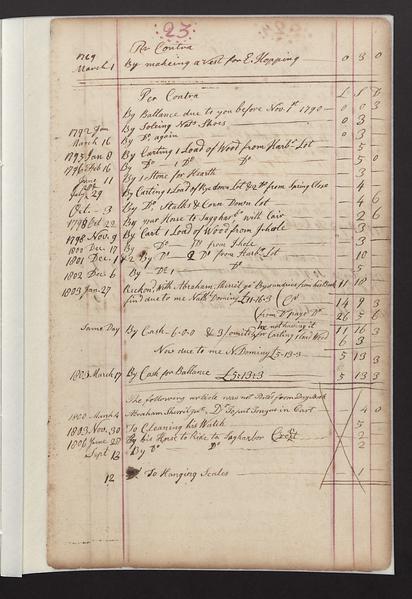 23.
1769 Per Contra
March 1 By makeing a Vest for E. Hopping 0 3 0
Per Contra £ S D
By Ballance due to you before Nov. 1st 1790 0 0 3
1792 Jan By Soleing Nats Shoes 0 3
March 16 By Do again 0 3
1795 Jan 8 By Carting 1 Load of Wood from Harbr Lot 5
1796 Feb 16 By Do 1 Do Do 5 0
June 11 By 1 Stone for Hearth 3
July 29 By Carting 1 Load of Rye down Lot & 2 Do from Spring Close 4
Oct. 3 By Do Stalks & Corn Down lot 4 6
1798 Oct 22 By your Horse to Saggharbr with Cair 2 6
1798 Nov. 9 By Cart 1 Load of Wood from Jehole 3
1800 Dec. 17 By Do Do from Jhole 3
1801 Dec. 1 By Do 2 Do from Harbr Lot 10
1802 Dec 6 By Do 1 Do 5
1803 Jan. 27 Reckond With Abraham Sherril 11 10
find due to me Nath Doming £11-16-3 14 9 3
from Do page Do 26 5 6
Same Day By Cash 6-0-0 & 3/ omited for Carting 1 Load Wood 11 16 3
he not having it 6 3
Now due to me N. Doming £5-13-3 5 13 3
1803 March 17 By Cash for Ballance £5:13:3 5 13 3
The following article was not Posted from Day Book
1800 March 4 Abraham Sherril Dr To put Tongue in Cart 4 0
1803 Nov. 30 To Cleaning his Watch 5
1806 June 20 By his Horse to Ride to Sagharbor Credt 2
Sept 13 By Do Do 2
12 To Hanging Scales 1